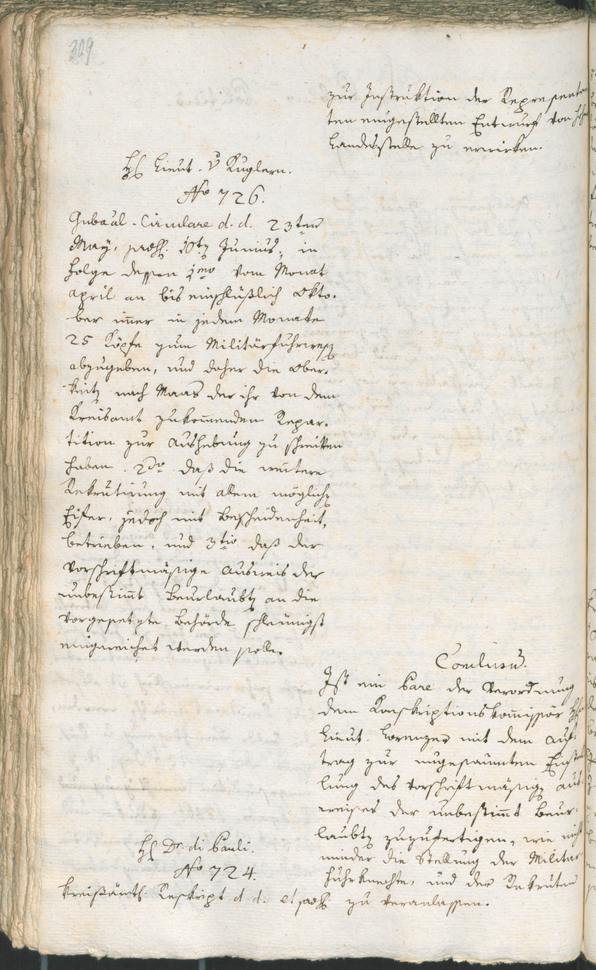 309
zur Instruktion der Representa
ten eingestellten Entwurf von
Landesstelle zu erwirken.
H Lieut. v Kuglern.
No 726.
Gubal-Circulare d. d. 23ten
May, 10t Junius, in
Folge dessen jmo vom Monat
April an bis einschlüßlich Okto-
ber immer in jedem Monate
25 Köpfe zum Militärfuhrwes
abzugeben, und daher die Ober-
keitz nach Maas der ihr von dem
Kreisamt zukommenden Repar-
tition zur Aushebung zu schreitten
haben. 2do daß die weitere
Rekrutirung mit allem möglichs
Eifer, jedoch mit Bescheidenheit,
betrieben, und 3tio daß der
vorschriftmäsige Ausweis der
unbestimt Beurlaubtz an die
vorgesetzte Behörde schleunigst
eingereichet werden solle.
Conclusū.
Ist ein Pare der Verordnung
dem Konskriptionskommissär
Lieut. Lorenzer mit dem Auf-
trag zur ungesäumten Einstel
lung des vorschriftmäsigz Aus-
weises der unbestimt Beur-
laubtz zuzufertigen, wie nicht
minder die Stellung der Militär
fuhrknechte, und der Rekruten
zu veranlassen.
H Dr di Pauli.
No 724.
Kreisämtl Reskript d. d. et